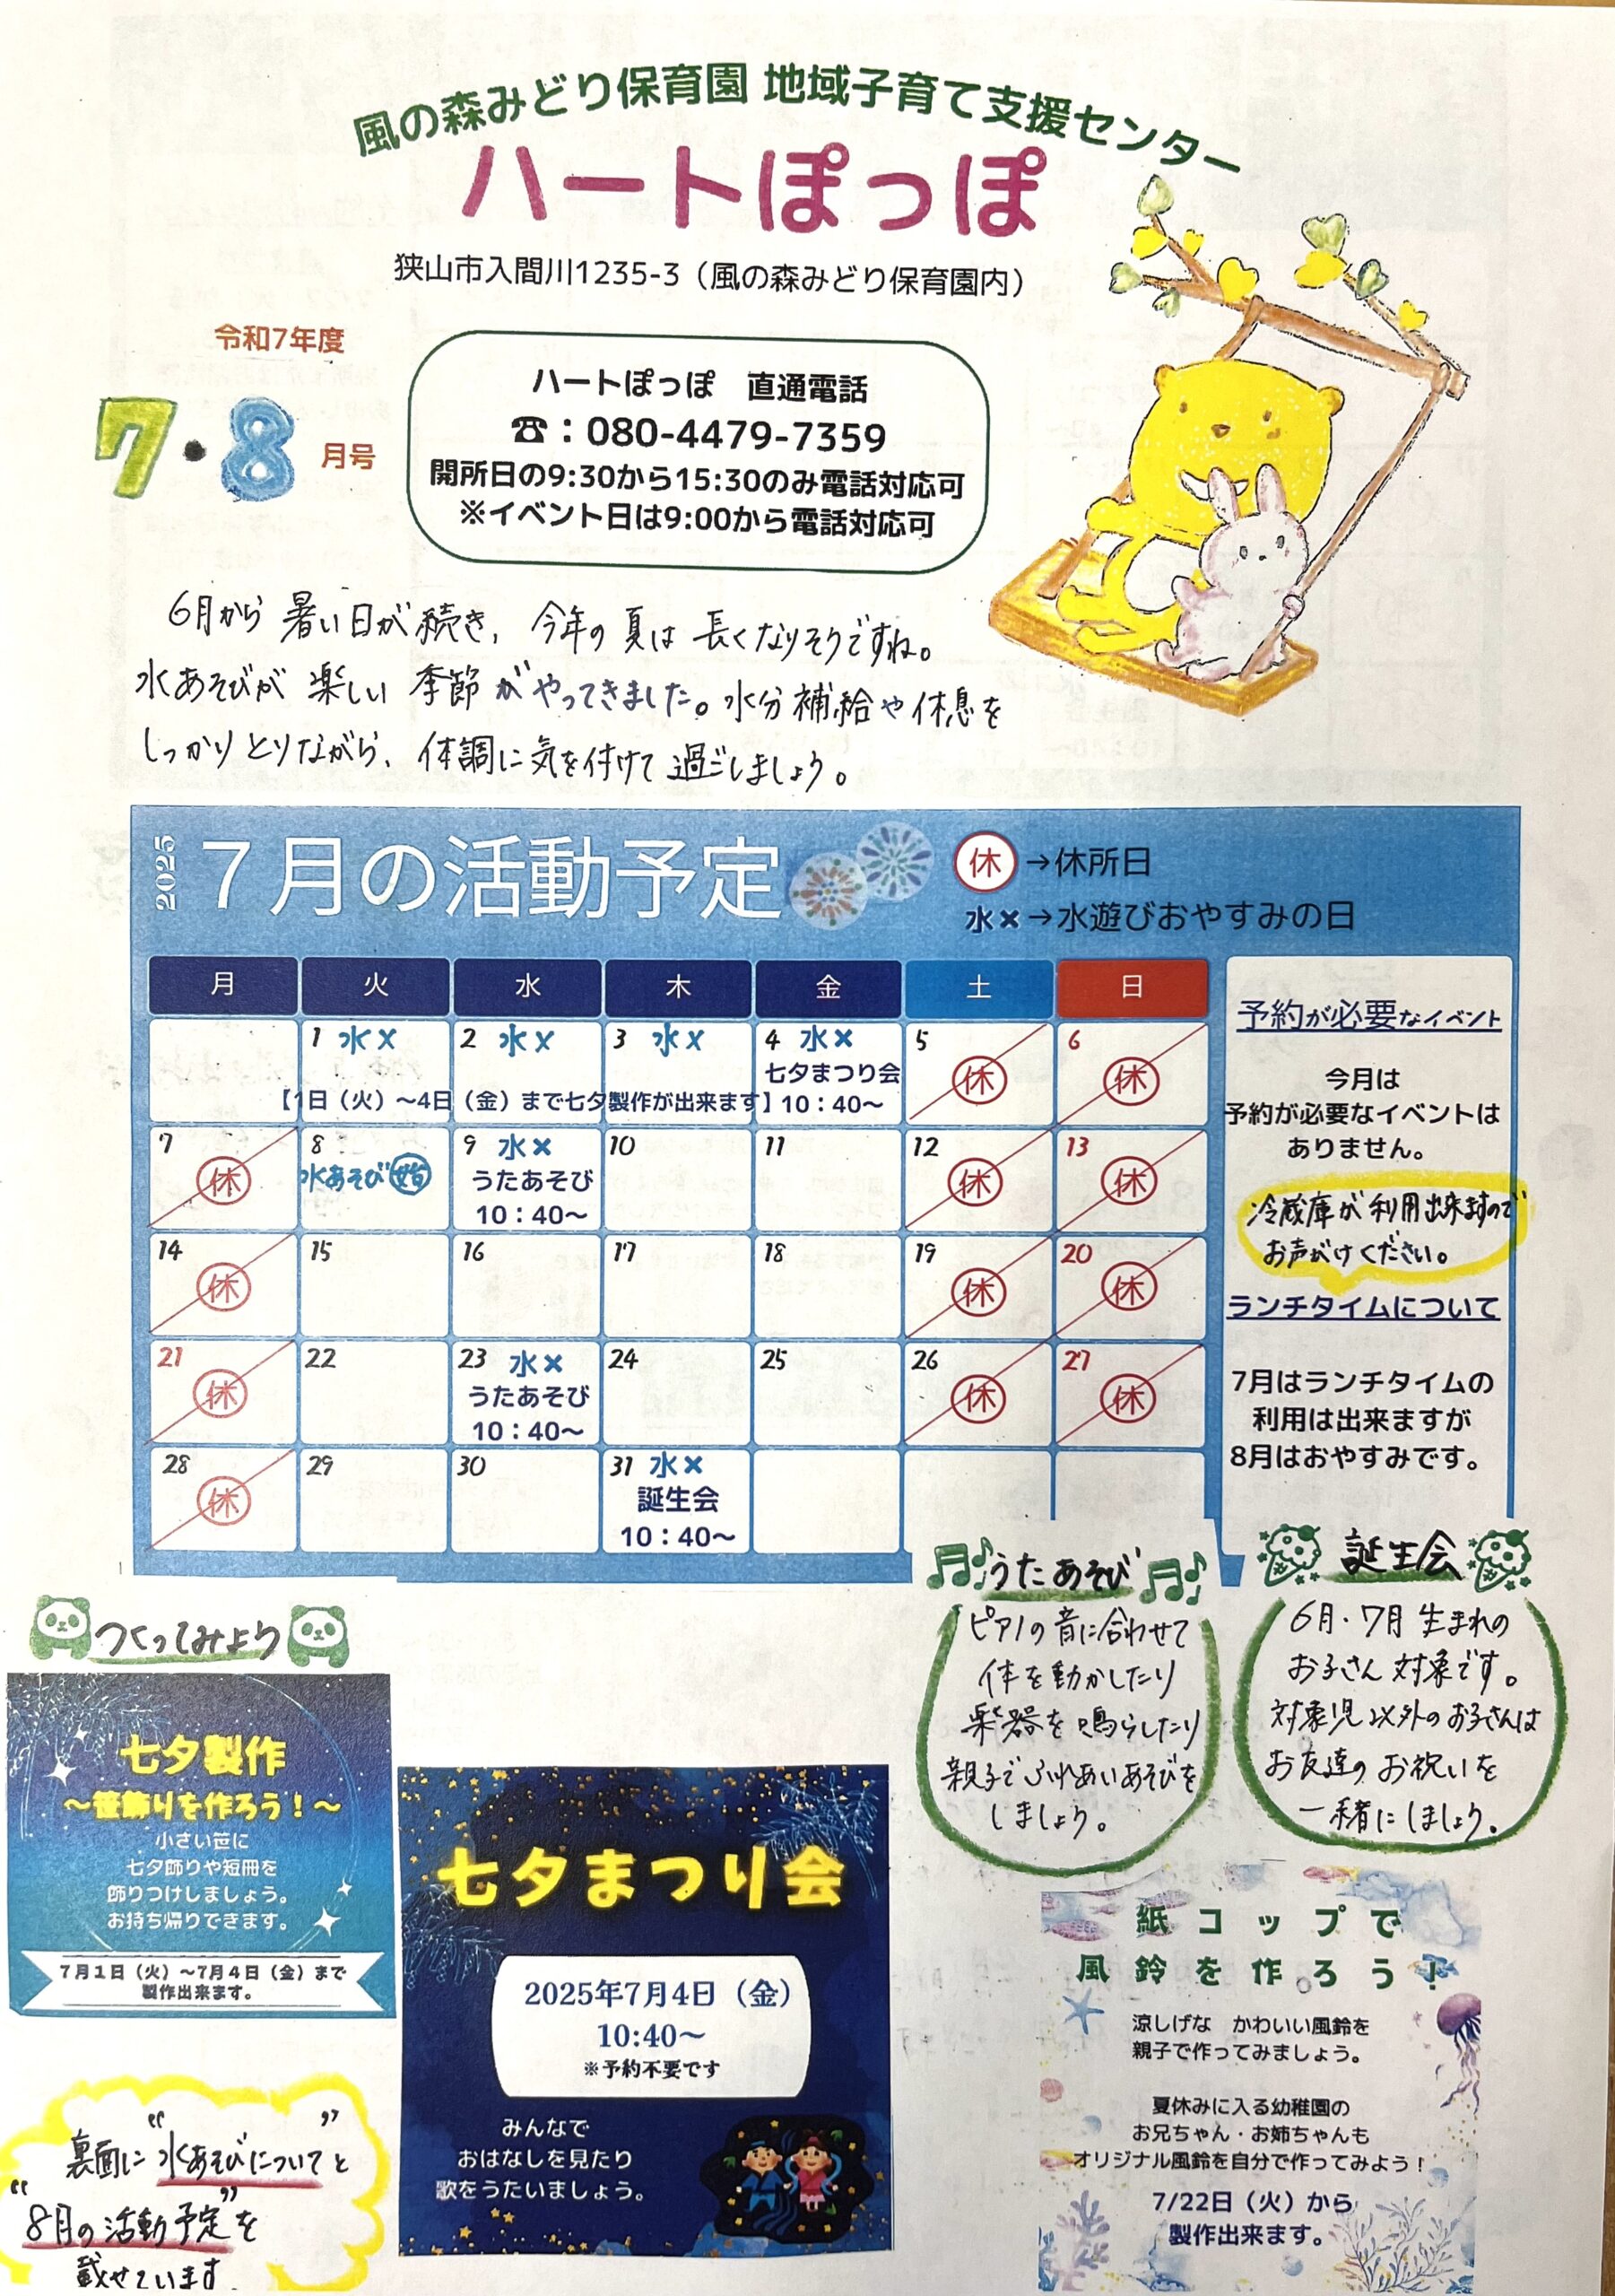 風の森みどり保育園 地域子育て支援センター
ハートぽっぽ
狭山市入間川1235-3（風の森みどり保育園内）
令和7年度
7・8月号
ハートぽっぽ　直通電話
☎：080-4479-7359
開所日の9:30から15:30のみ電話対応可
※イベント日は9:00から電話対応可
6月から 暑い日が続き、今年の夏は 長くなりそうですね。
水あそびが 楽しい 季節がやってきました。水分補給や休息を
しっかりとりながら、体調に気を付けて過ごしましょう。
2025 7月の活動予定
休→休所日
水×→水遊びおやすみの日
月 火 水 木 金 土 日
1 水× 2 水× 3 水× 4 水× 5 6
七夕まつり会
【1日（火）～4日（金）まで七夕製作が出来ます】10：40～ 休 休
7 8 9 水× 10 11 12 13
休 水あそび開始 うたあそび 休 休
10：40～
14 15 16 17 18 19 20
休 休 休
21 22 23 水× 24 25 26 27
休 うたあそび 休 休
10：40～
28 29 30 31 水×
休 誕生会
10：40～
予約が必要なイベント
今月は
予約が必要なイベントは
ありません。
冷蔵庫が利用出来ますので
お声がけください。
ランチタイムについて
7月はランチタイムの
利用は出来ますが
8月はおやすみです。
うたあそび
ピアノの音に合わせて
体を動かしたり
楽器を鳴らしたり
親子でふれあいあそびを
しましょう。
誕生会
6月・7月 生まれの
お子さん対象です。
対象児以外のお子さんは
お友達のお祝いを
一緒にしましょう。
つくってみよう
七夕製作
～笹飾りを作ろう！～
小さい笹に
七夕飾りや短冊を
飾りつけしましょう。
お持ち帰りできます。
7月1日（火）～7月4日（金）まで
製作出来ます。
七夕まつり会
2025年7月4日（金）
10:40～
※予約不要です
みんなで
おはなしを見たり
歌をうたいましょう。
紙コップで
風鈴を作ろう！
涼しげな　かわいい風鈴を
親子で作ってみましょう。
夏休みに入る幼稚園の
お兄ちゃん・お姉ちゃんも
オリジナル風鈴を自分で作ってみよう！
7/22日（火）から
製作出来ます。
裏面に“水あそびについて”と
“8月の活動予定”を
載せています